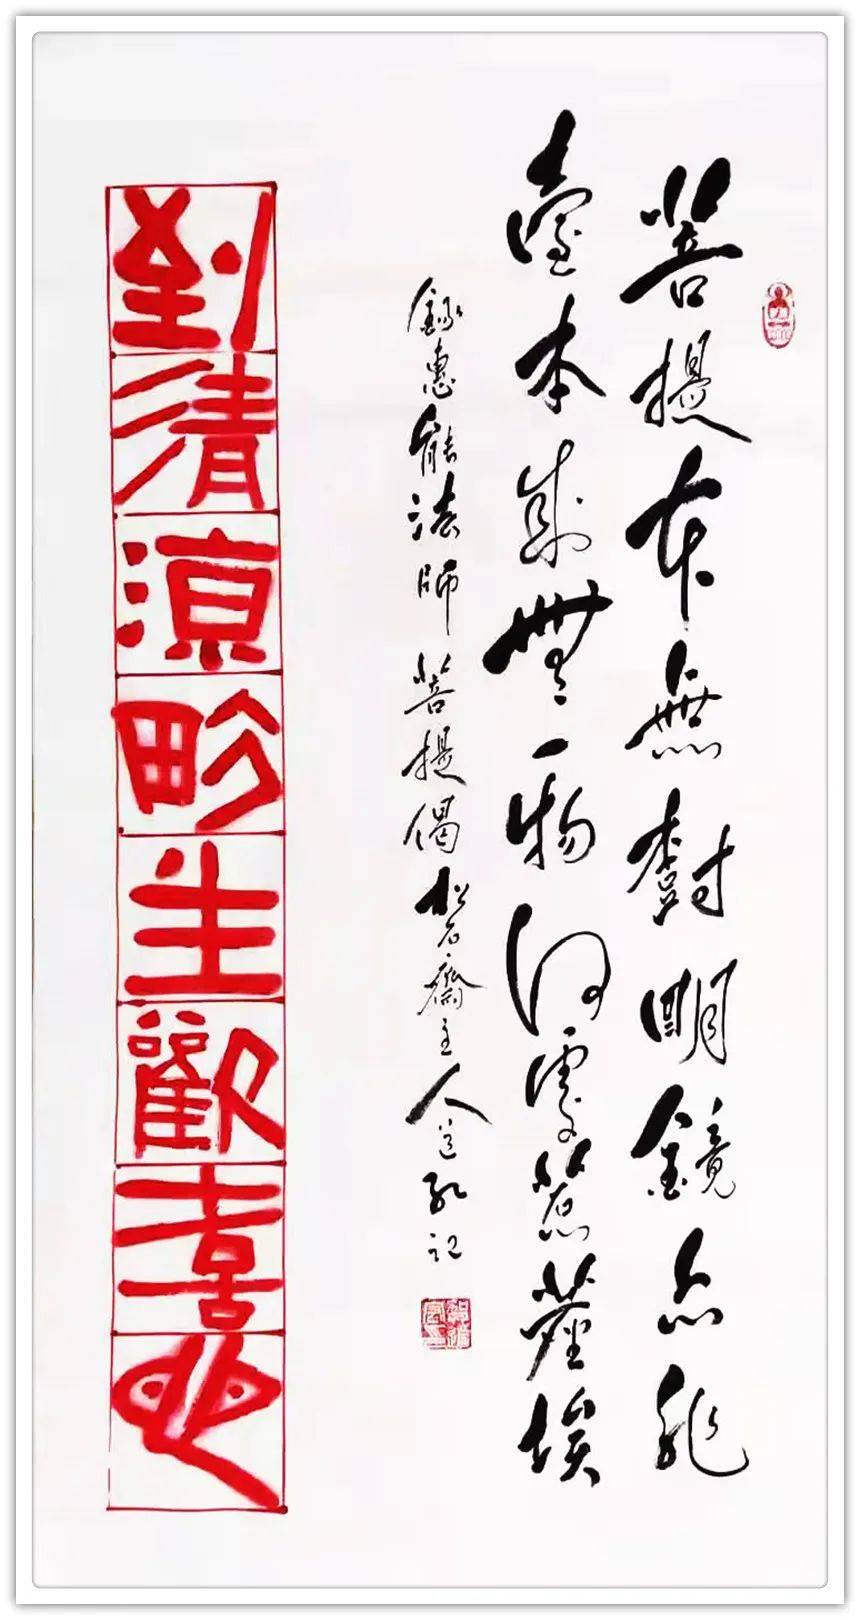 菩提本無樹明鏡亦非
臺本來無一物何處惹塵埃
錄惠能法師菩提偈松石齋主人道孔記
到清涼畍生歡喜心